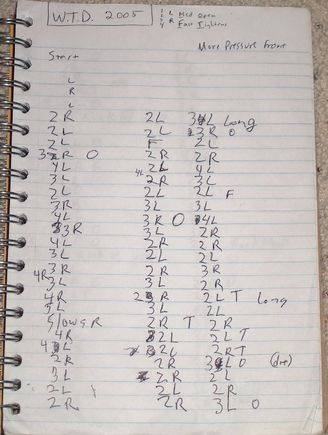 W.T.D. 2005
L Med Open
R Fast Tighten
More Pressure Front
Start
L
R
L
2R 2L 3L Long
2L 2L 3R O
2L F 2L
3R O 2R 2R
4L 4L 2L 4L
3L 2R 3L
2L 2L 2L F
3R 3L 3L
4L 3R O 4L
3R 3L 2R
4L 2R 2R
3L 2L 2L
3R 2R 3R
4R 3L 2L 2R
4R 2R 2L T Long
3L 3L 2L
Slow 9R 2R T 2R
4R 2L 2L T
4L 2L 2R T
2R 2R 3L O (dot)
3L 2R 2L
2L 2L 2R
2R 2R 3L O